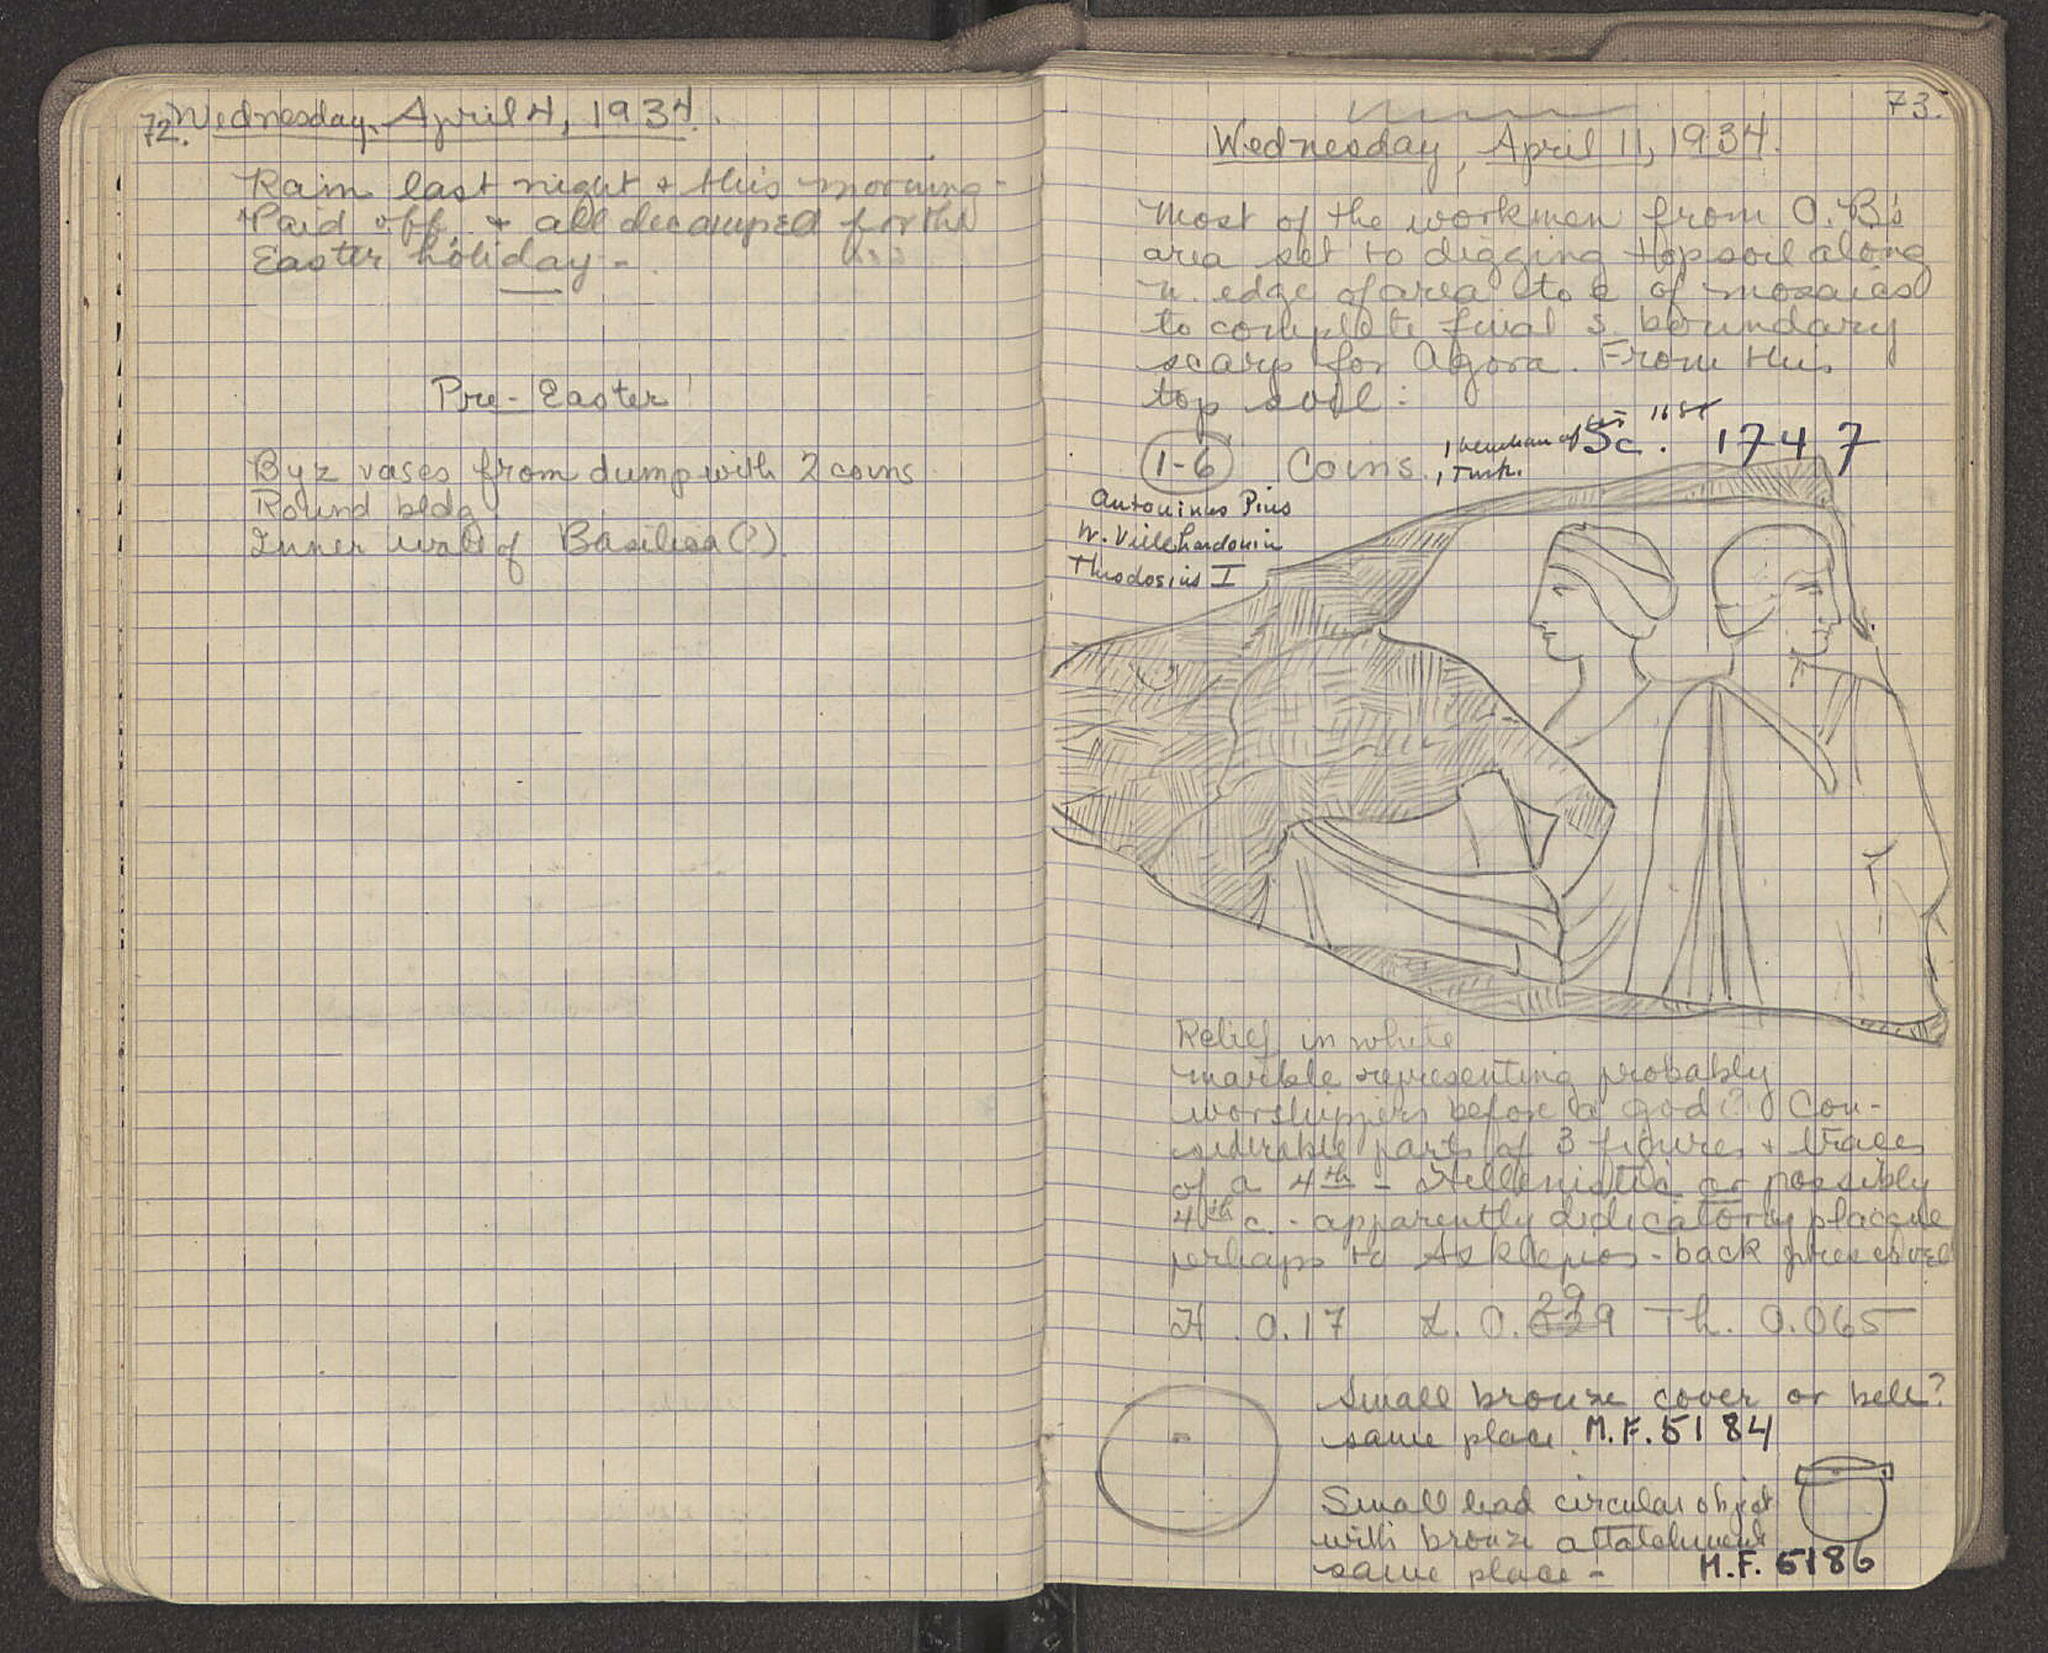 72. Wednesday, April 4, 1934.
Rain last night & this morning -
Paid off, & all decamped for the
Easter holiday -
Pre-Easter!
Byz vases from dump with 2 coins
Round bldg.
Inner wall of Basilica (?).
73.
Wednesday, April 11, 1934.
Most of the workmen from O.B's
area set to digging topsoil along
n. edge of area to e of mosaics
to complete final s. boundary
scarp for Agora. From this
top soil:
1-6 Coins. 1 of
1 Turk.
S c. 1747
Antoninus Pius
W. Villehardouin
Theodosius I
Relief in white
marble representing probably
worshippers before a god? Con-
siderable parts of 3 figures & traces
of a 4th - Hellenistic or possibly
4th c. - apparently dedicatory plaque
perhaps to Asklepios - back preserved
29
H. 0.17 L. 0.029 Th. 0.065
Small bronze cover or bell?
same place. M.F. 5184
Small lead circular object
with bronze attatchment
same place - M.F. 5186